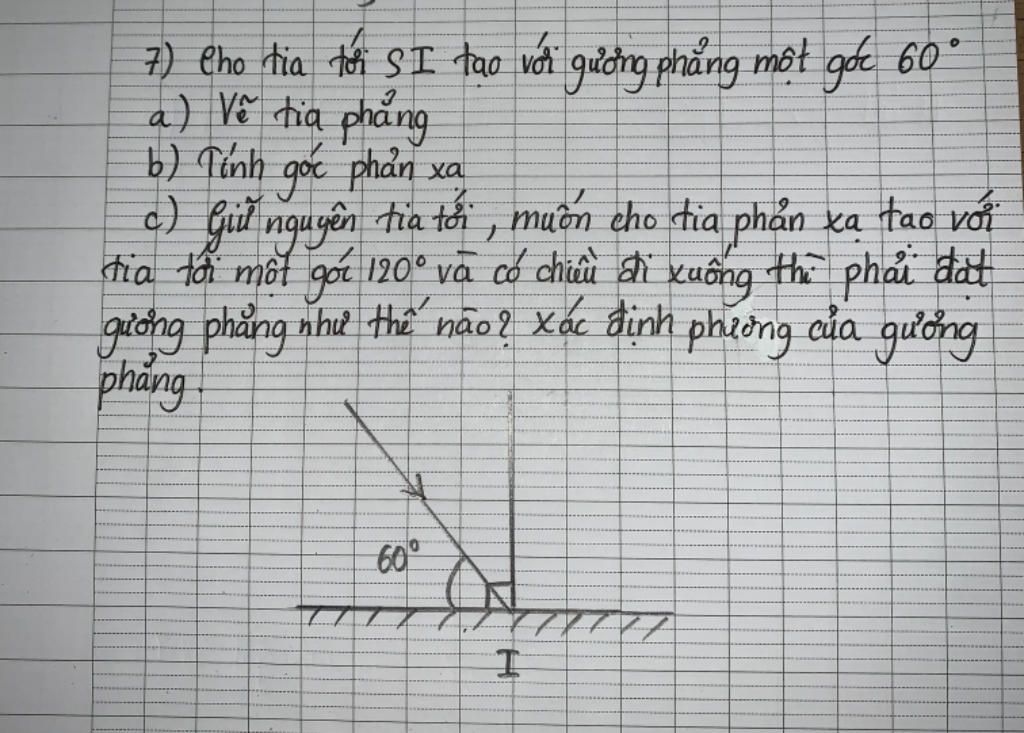 7) Cho tia tới SI tạo với gương phẳng một góc 60°
a) Vẽ tia phẳng
b) Tính góc phản xạ
c) Giữ nguyên tia tới, muốn cho tia phản xạ tạo với
tia tới một góc 120° và có chiều đi xuống thì phải đặt
gương phẳng như thế nào? Xác định phương của gương
phẳng.
60°
I